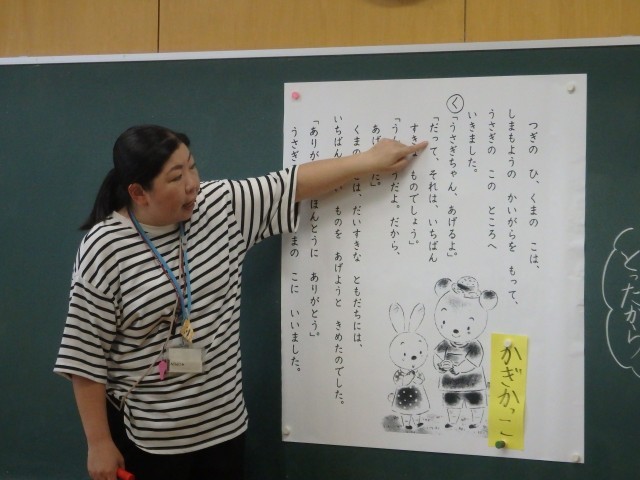 く
つぎの ひ、くまの こは、
しまもようの かいがらを もって、
うさぎの この ところへ
いきました。
「うさぎちゃん、あげるよ。」
「だって、それは、いちばん
すき ものでしょう。」
「う うだよ。だから、
あげ 」
くまの は、だいすきな ともだちには、
いちばん ものを あげようと きめたのでした。
「ありが ほんとうに ありがとう。」
うさぎ まの こに いいました。
かぎかっこ
とったから